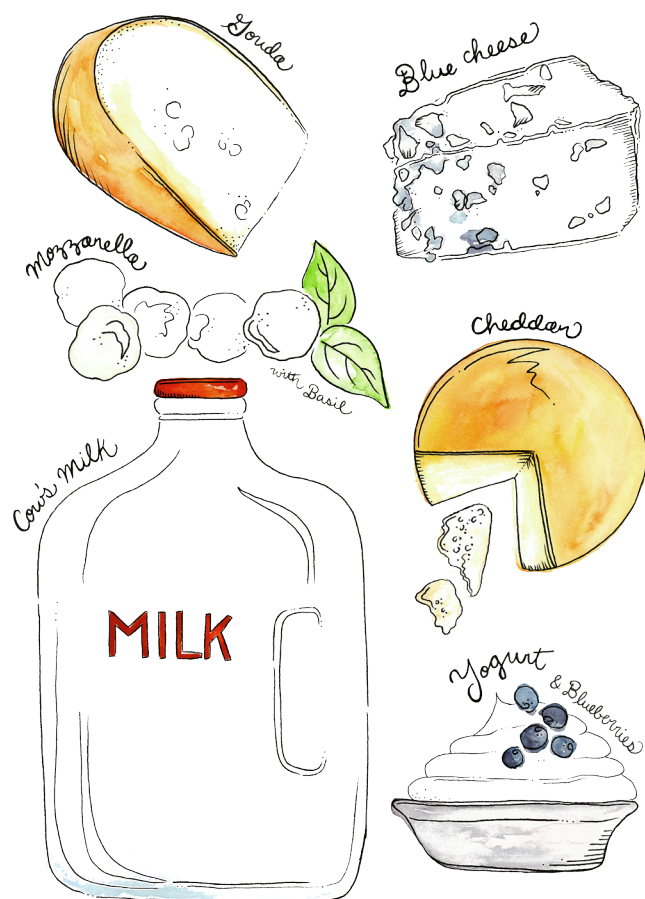 Gouda
Blue cheese
Mozzarella
with Basil
Cheddar
Cow's Milk
MILK
Yogurt
& Blueberries